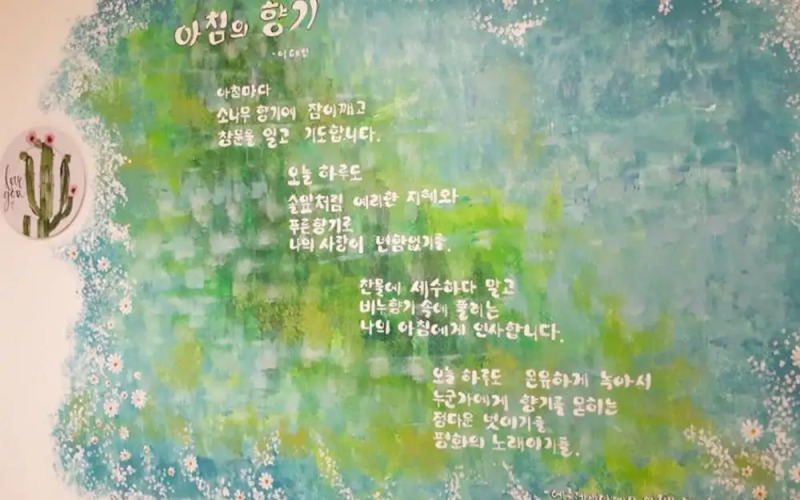 아침의 향기
아침마다
소나무 향기에 잠이깨고
창문을 열고 기도합니다.
오늘 하루도
솔잎처럼 예리한 지혜와
푸른향기로
나의 사랑이 변함없기를.
찬물에 세수하다 말고
비누향기 속에 풀리는
나의 아침에게 인사합니다.
오늘 하루도 온유하게 녹아서
누군가에게 향기를 묻히는
정다운 벗이기를
평화의 노래이기를.
love
you